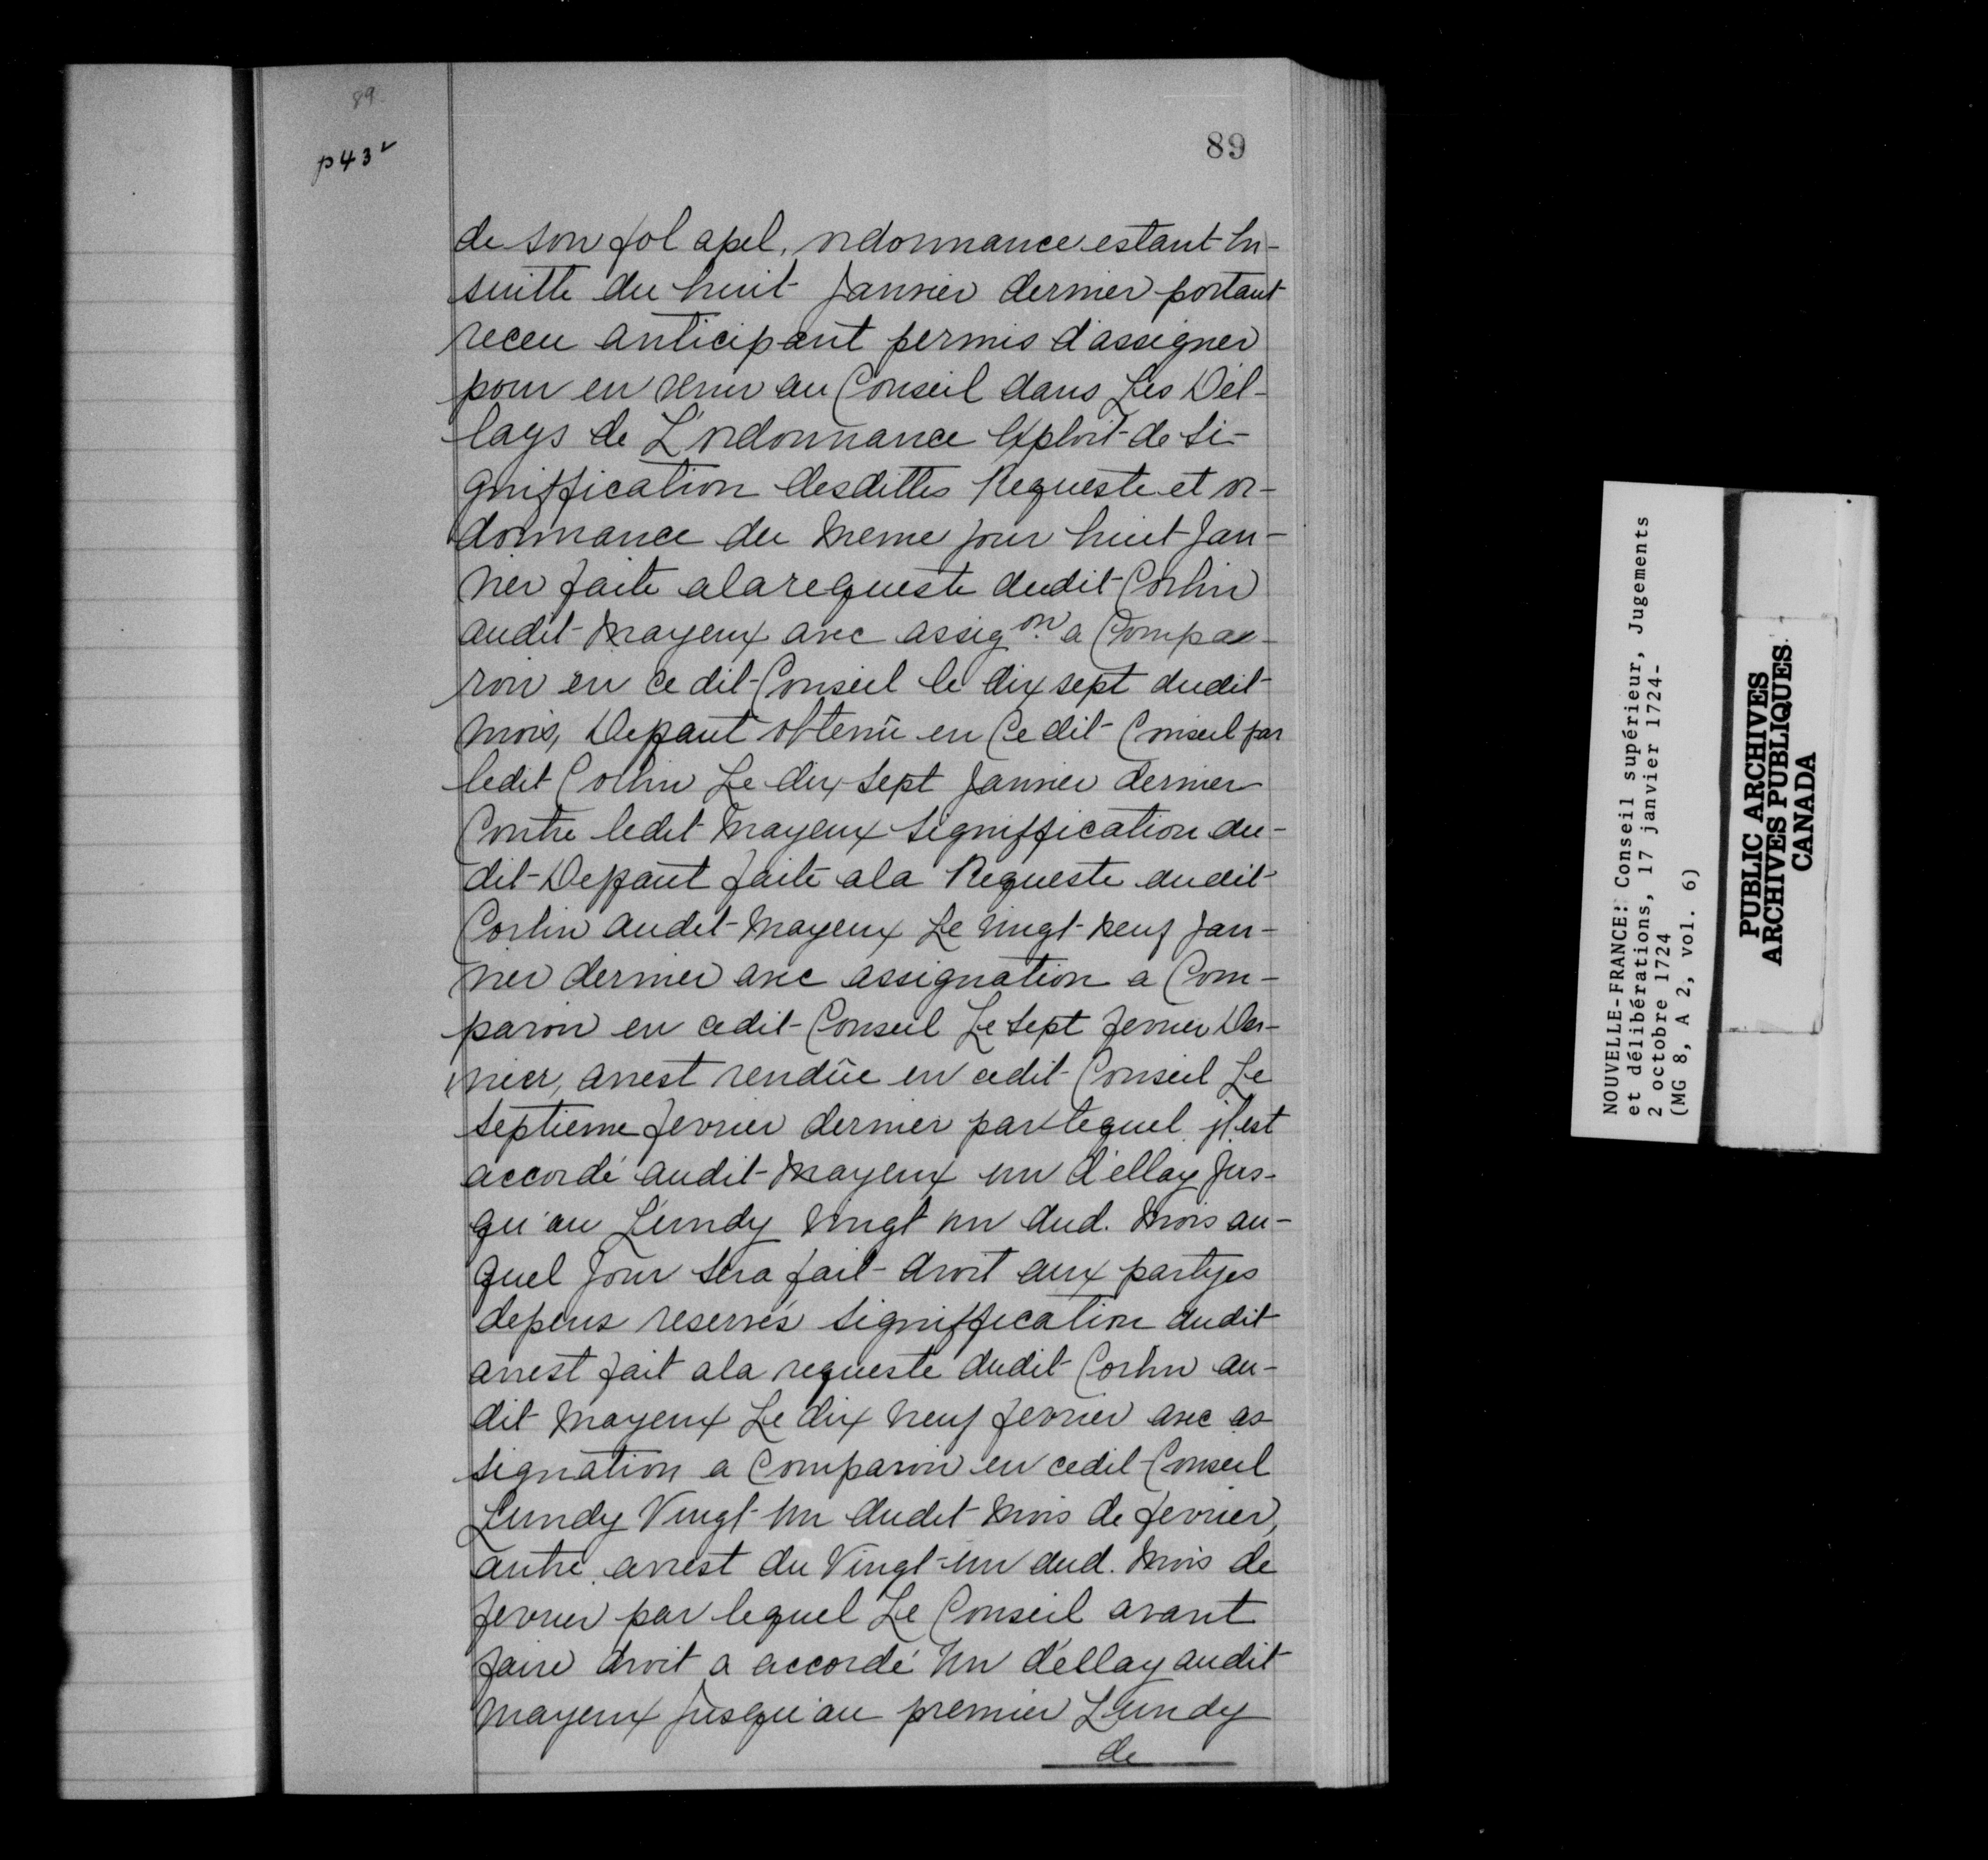 89
p 43 v
89
de son fol apel, ordonnance estant En-
suitte du huit Janvier dernier portant
receu anticipant permis d'assigner
pour en venir au Conseil dans Les Dél-
lays de L'ordonnance Exploit de si-
gniffication desdittes Requeste et or-
donnance du meme jour huit Jan-
vier faite alarequeste dudit Corbin
audit Mayeux avec assig.on a Compa-
roir en ce dit Conseil le dix sept dudit
mois, Deffaut obtenû en Ce dit Conseil par
ledit Corbin Le dix sept Janvier dernier
Contre ledit Mayeux signiffication du-
dit Deffaut faite ala Requeste dudit
Corbin audit Mayeux Le vingt neuf Jan-
vier dernier avec assignation a Com-
paroir en cedit Conseil Le sept fevrier Der-
nier, arrest rendûe en cedit Conseil Le
septieme fevrier dernier par lequel jl est
accordé audit Mayeux un déllay Jus-
qu'au Lundy vingt un dud. mois au-
quel Jour sera fait droit aux partyes
depens reservés signiffication dudit
arrest fait ala requeste dudit Corbin au-
dit Mayeux Le dix neuf fevrier avec as-
signation a Comparoir en cedit Conseil
Lundy Vingt un dudit mois de fevrier,
autre arrest du Vingt-un dud. mois de
fevrier par lequel Le Conseil avant
faire droit a accordé Un déllay audit
Mayeux Jusqu'au premier Lundy
de
NOUVELLE-FRANCE: Conseil supérieur, Jugements
et délibérations, 17 janvier 1724-
2 octobre 1724
(MG 8, A 2, vol. 6)
PUBLIC ARCHIVES
ARCHIVES PUBLIQUES
CANADA